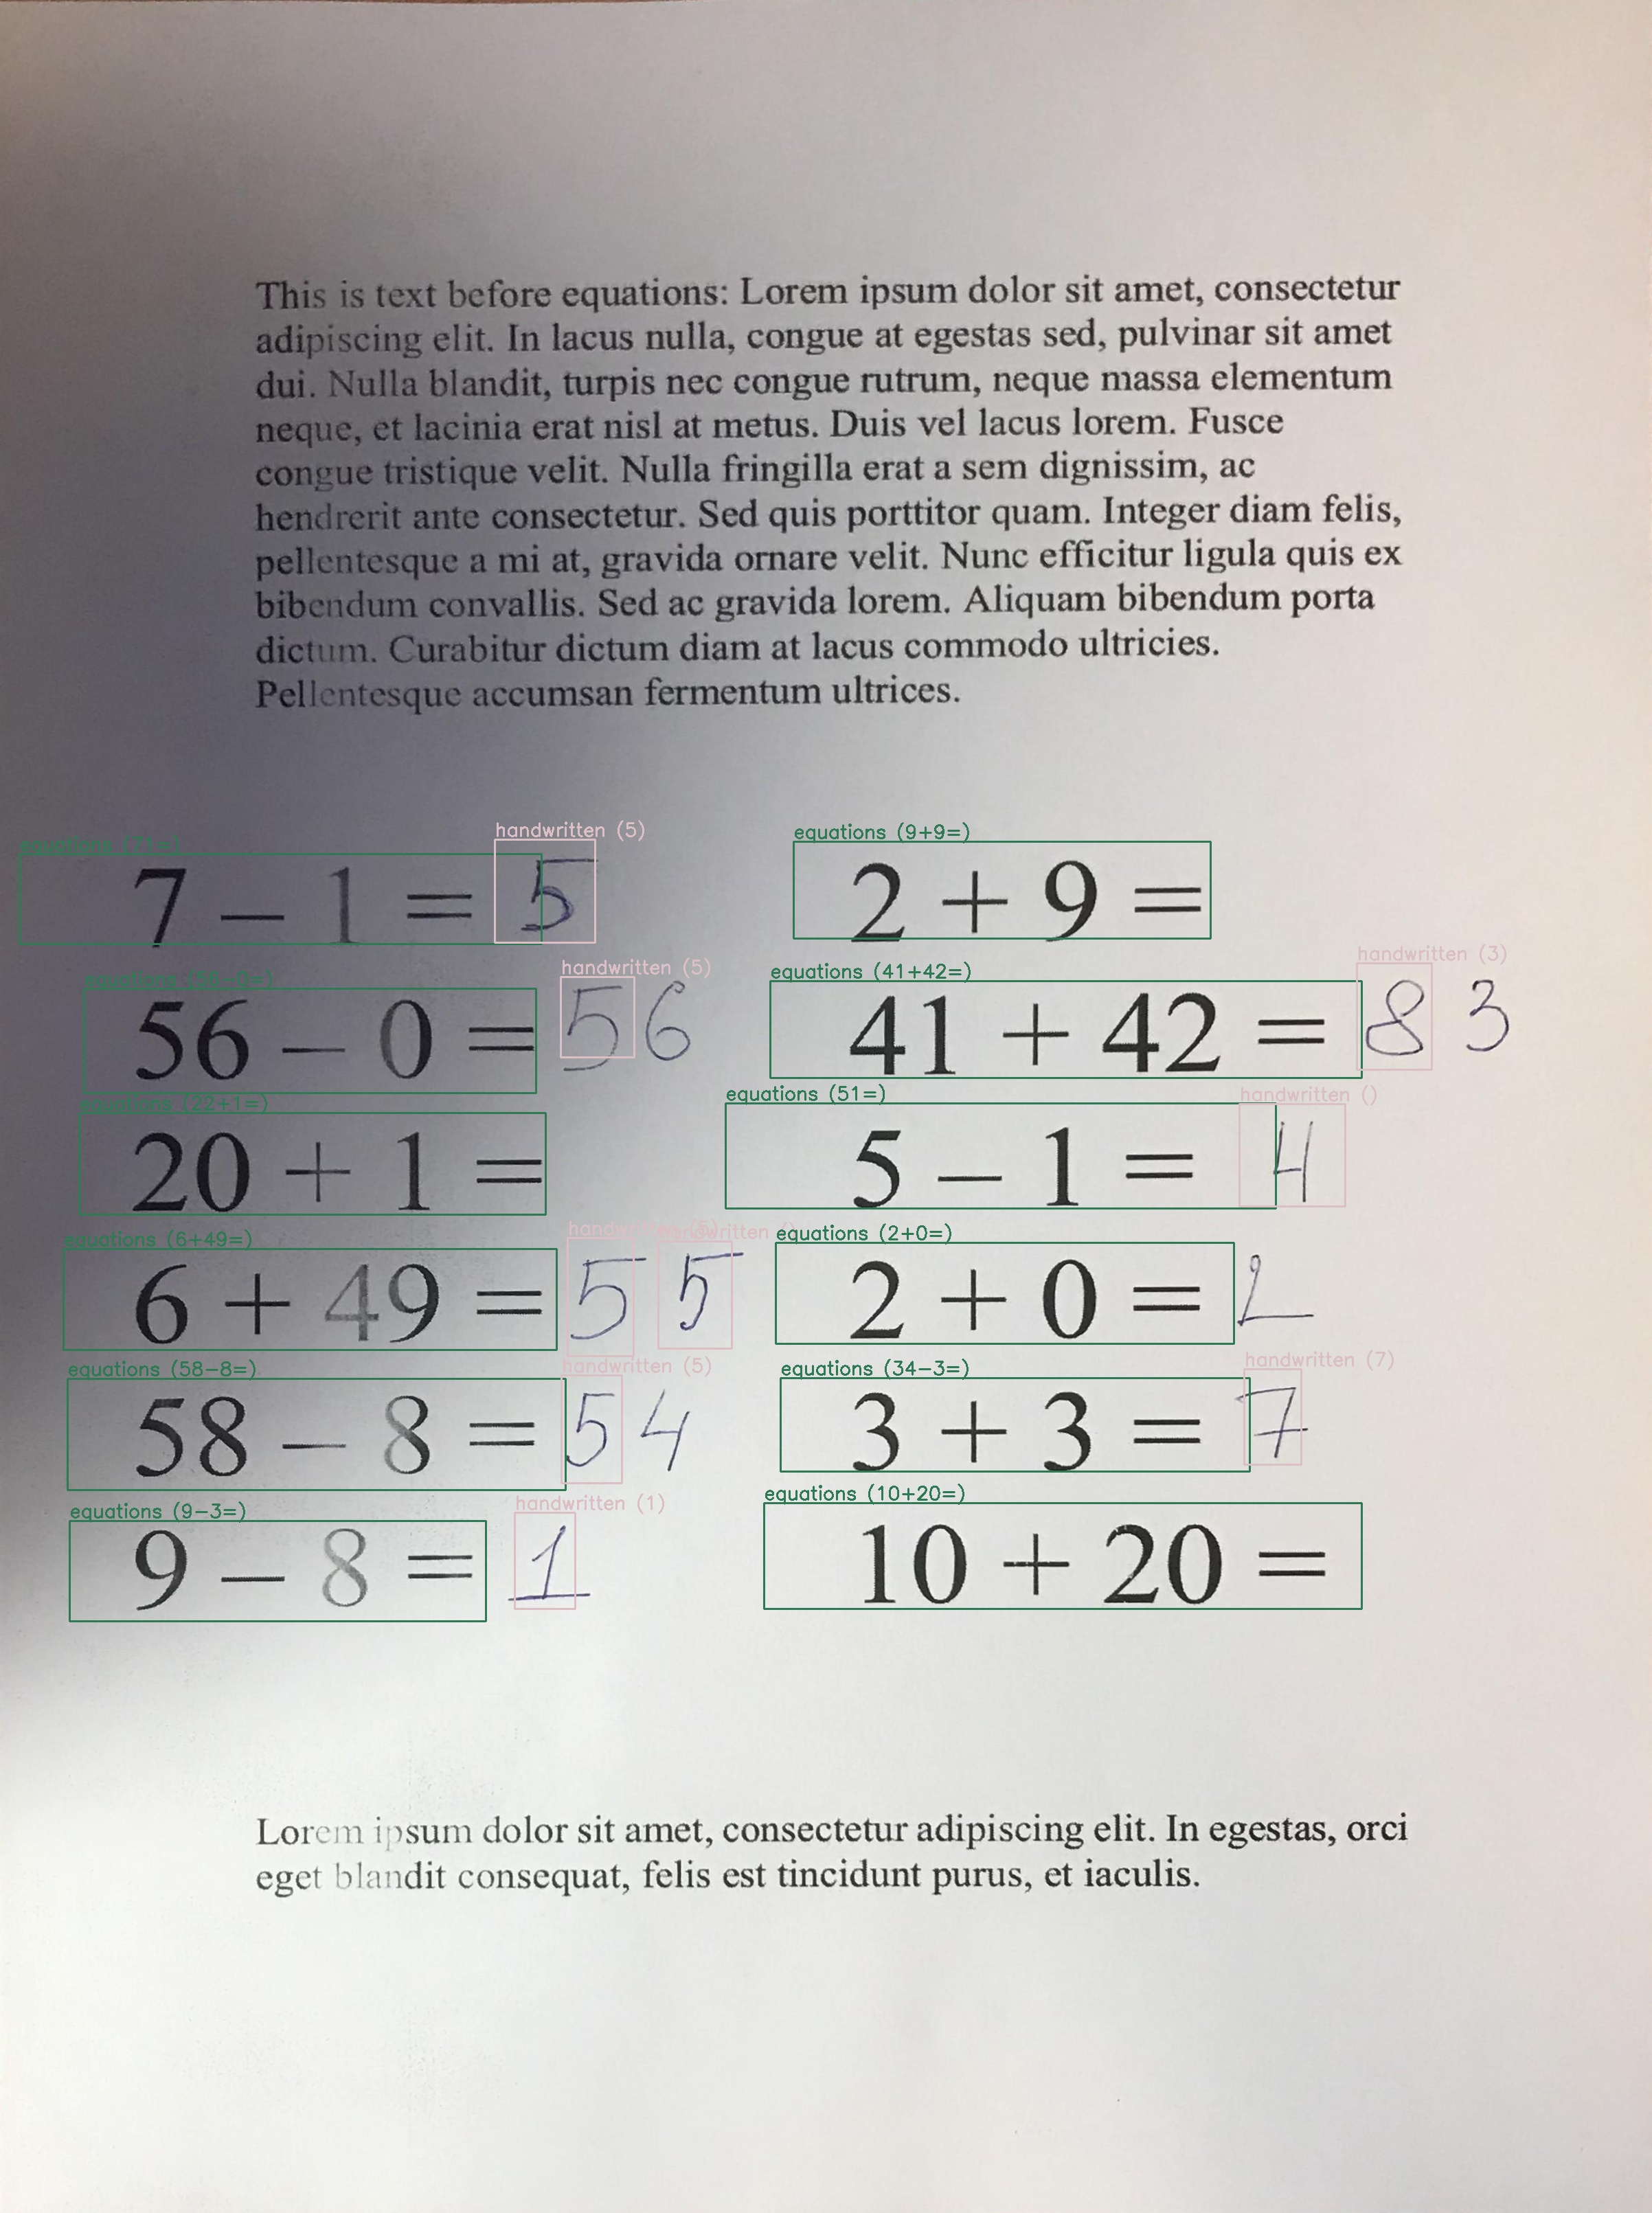 This is text before equations: Lorem ipsum dolor sit amet, consectetur
adipiscing elit. In lacus nulla, congue at egestas sed, pulvinar sit amet
dui. Nulla blandit, turpis nec congue rutrum, neque massa elementum
neque, et lacinia erat nisl at metus. Duis vel lacus lorem. Fusce
congue tristique velit. Nulla fringilla erat a sem dignissim, ac
hendrerit ante consectetur. Sed quis porttitor quam. Integer diam felis,
pellentesque a mi at, gravida ornare velit. Nunc efficitur ligula quis ex
bibendum convallis. Sed ac gravida lorem. Aliquam bibendum porta
dictum. Curabitur dictum diam at lacus commodo ultricies.
Pellentesque accumsan fermentum ultrices.
equations (71=) handwritten (5) equations (9+9=)
7 – 1 = 5 2 + 9 =
equations (56-0=) handwritten (5) equations (41+42=) handwritten (3)
56 – 0 = 56 41 + 42 = 83
equations (22+1=) equations (51=) handwritten ()
20 + 1 = 5 – 1 = 4
equations (6+49=) handwritten (5) handwritten () equations (2+0=)
6 + 49 = 55 2 + 0 = 2
equations (58-8=) handwritten (5) equations (34-3=) handwritten (7)
58 – 8 = 54 3 + 3 = 7
equations (9-3=) handwritten (1) equations (10+20=)
9 – 8 = 1 10 + 20 =
Lorem ipsum dolor sit amet, consectetur adipiscing elit. In egestas, orci
eget blandit consequat, felis est tincidunt purus, et iaculis.